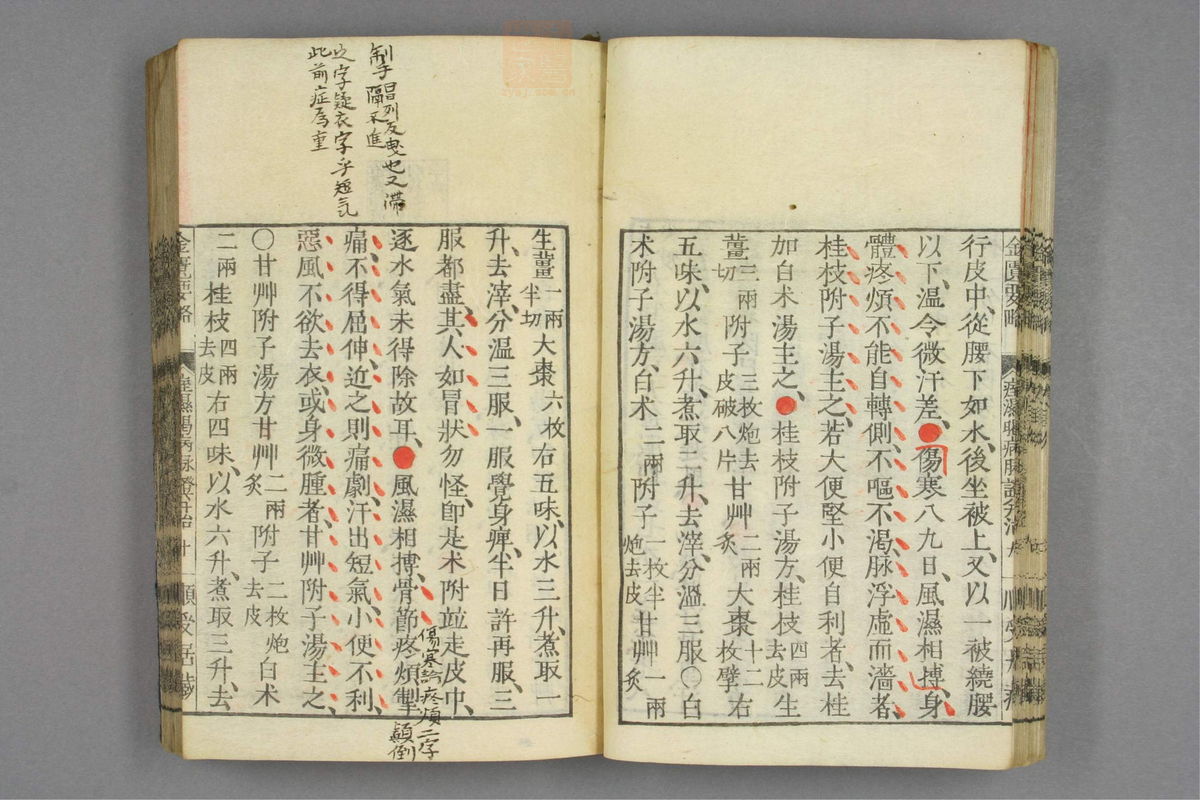 行皮中、從腰下如水、後坐被上、又以一被繞腰
以下、温令微汗差、●傷寒八九日、風濕相搏、身
體疼煩、不能自轉側、不嘔不渴、脉浮虛而濇者、
桂枝附子湯主之、若大便堅小便自利者、去桂
加白朮湯主之、●桂枝附子湯方、桂枝四兩去皮生
薑三兩切附子三枚炮去皮破八片甘艸二兩炙大棗十二枚擘右
五味、以水六升、煮取二升、去滓、分溫三服〇白
朮附子湯方、白朮二兩附子一枚半炮去皮甘艸一兩炙
金匱要略
生薑一兩半切大棗六枚右五味、以水三升、煮取一
升、去滓、分温三服、一服覺身痺、半日許再服、三
服都盡、其人如冒狀勿怪、卽是朮附竝走皮中、
逐水氣未得除故耳、●風濕相搏、骨節疼煩、掣
痛、不得屈伸、近之則痛劇、汗出短氣、小便不利、
惡風不欲去衣、或身微腫者、甘艸附子湯主之、
〇甘艸附子湯方甘艸二兩炙附子二枚炮去皮白朮
二兩桂枝四兩去皮右四味、以水六升、煮取三升、去
掣字昌列反曳也又滯
隔不進
之字疑衣字乎短气
此前症爲重
傷寒論疼煩二字
顛倒